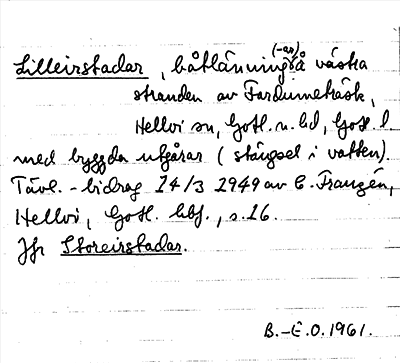 Lilleirstadar, båtlänning (-ar) å västra
stranden av Fardumeträsk,
Hellvi sn, Gotl. n. hd, Gotl. l
med byggda utgårar (stängsel i vatten).
Tävl.-bidrag 14/3 1949 av C. Franzén,
Hellvi, Gotl. hbf., s. 16.
Jfr Storeirstadar.
B.-E.O. 1961.